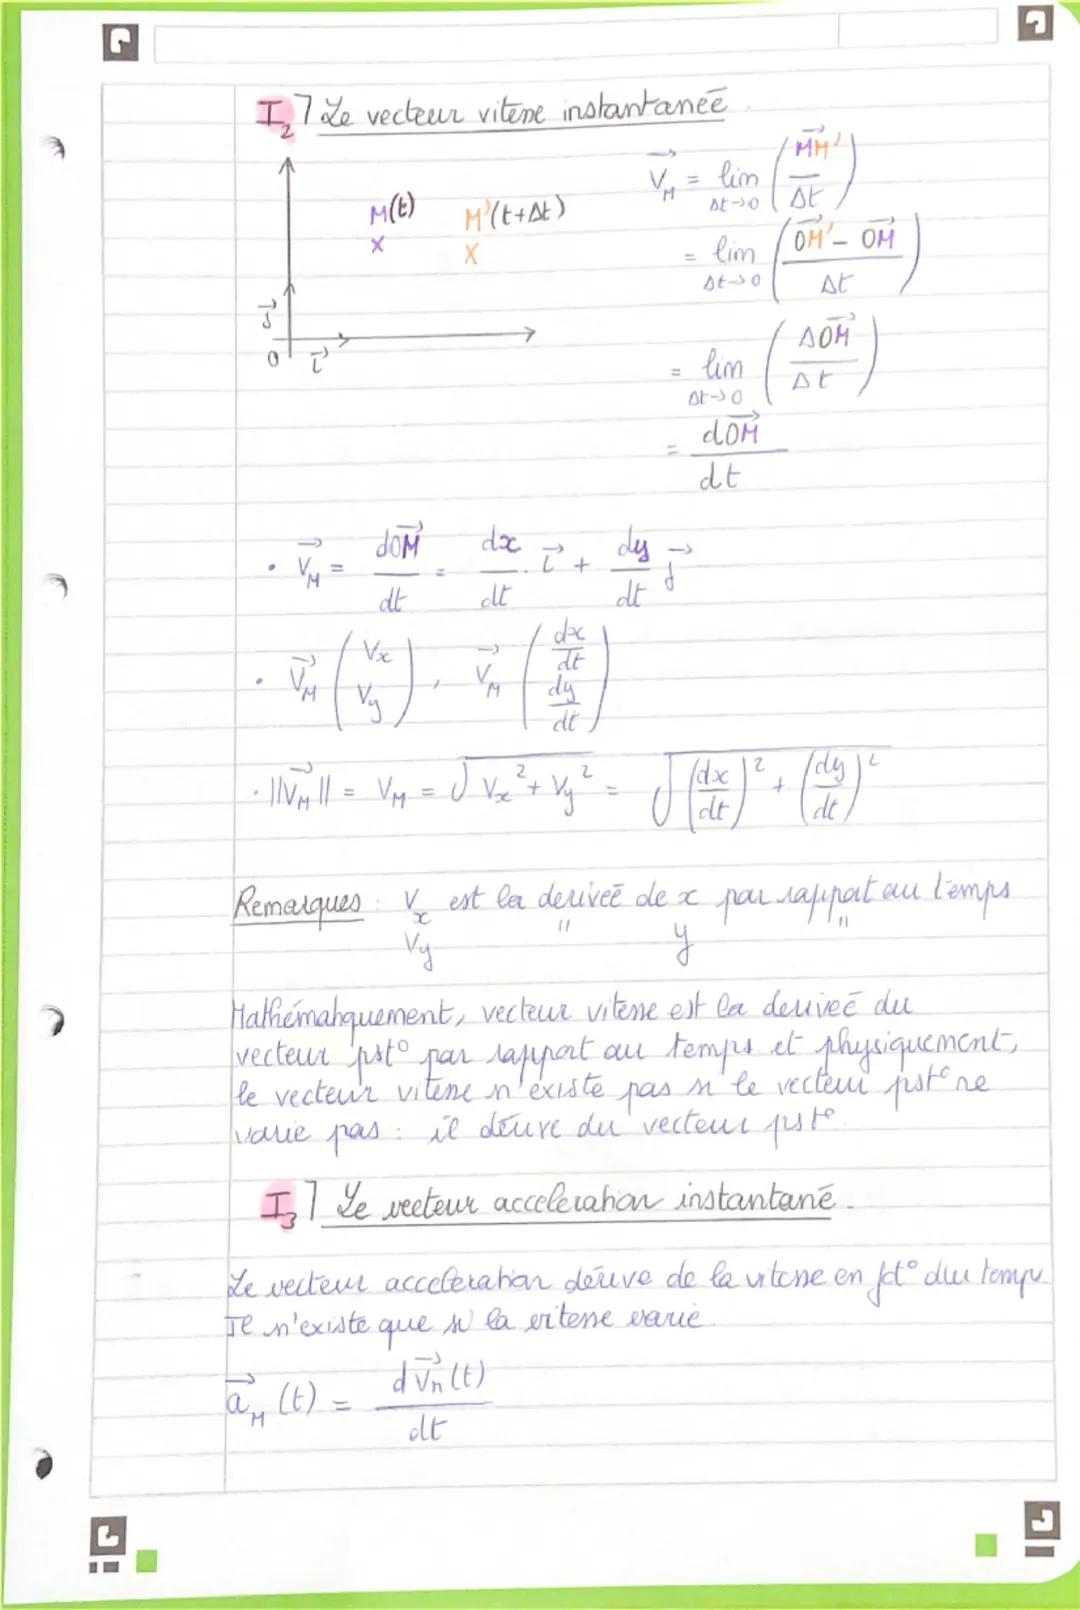 I₂] Le vecteur vitesse instantaneē
M(t) M'(t+Δt)
x x
j⃗
O i⃗
V⃗_M = lim_{Δt→0} (MM'⃗ / Δt)
= lim_{Δt→0} ((OM'⃗ - OM⃗) / Δt)
= lim_{Δt→0} (ΔOM⃗ / Δt)
= dOM⃗ / dt
• V⃗_M = dOM⃗/dt = dx/dt . i⃗ + dy/dt j⃗
• V⃗_M (Vx Vy), V⃗_M (dx/dt dy/dt)
• ||V⃗_M|| = V_M = √(Vx² + Vy²) = √((dx/dt)² + (dy/dt)²)
Remarques : Vx est la deriveē de x par rapport au temps
Vy " y "
Mathématiquement, vecteur vitesse est la deriveē du
vecteur pst° par rapport au temps et physiquement,
le vecteur vitesse n'existe pas si le vecteur pst° ne
varie pas : il dérive du vecteur pst°.
I₃] Le vecteur acceleration instantanē.
Le vecteur acceleration dérive de la vitesse en fct° du temps
Il n'existe que si la vitesse varie
a⃗_M (t) = dV⃗_M(t) / dt